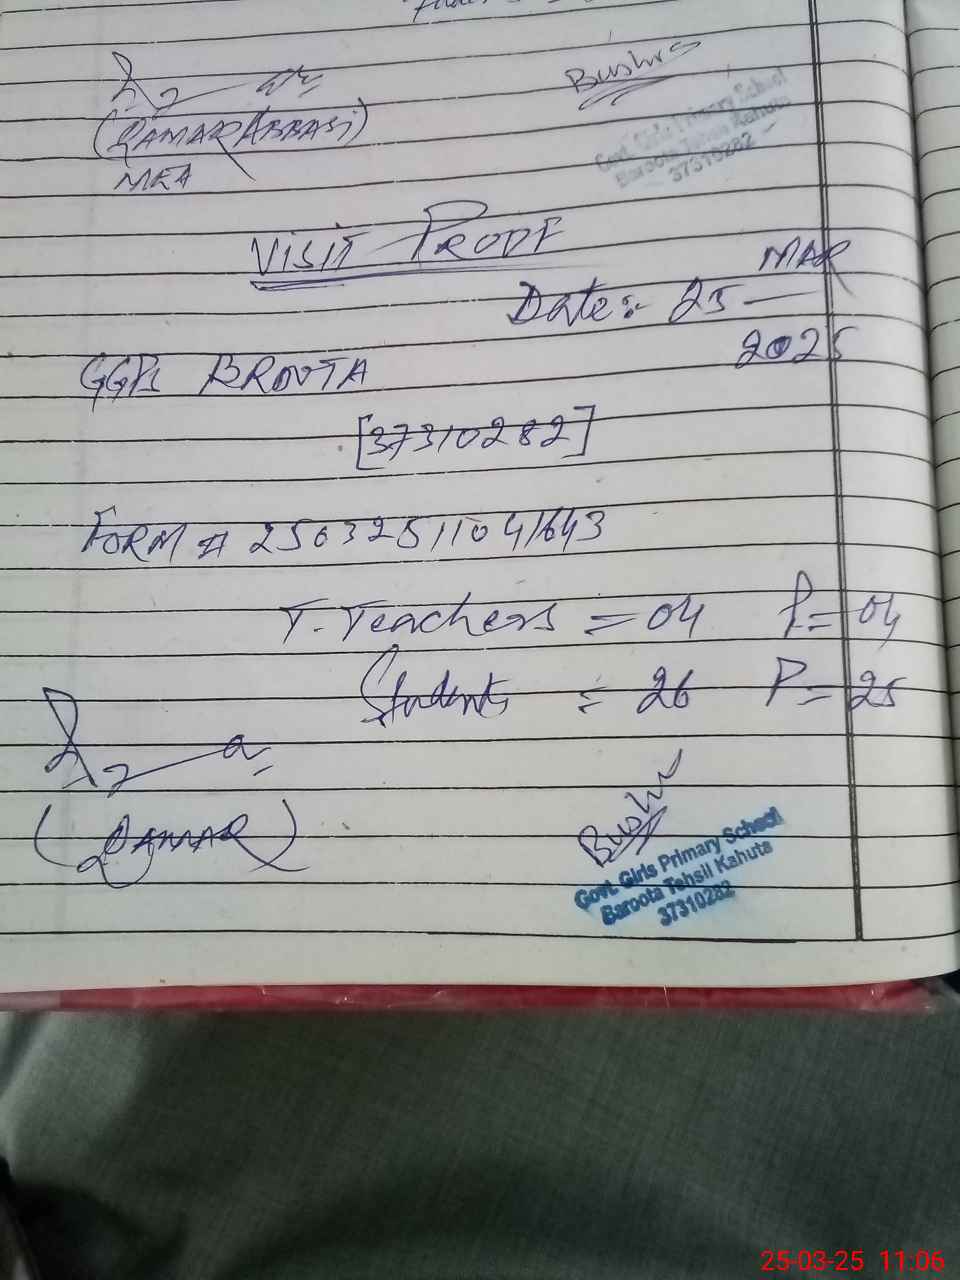 Bushra
(QAMAR ABBASI)
MEA
Govt. Girls Primary School
Baroota Tehsil Kahuta
37310282
VISIT PROOF
Date:- 25 MAR
2025
GGPS BROOTA
[37310282]
FORM # 25032511041643
T. Teachers = 04 P = 04
Students = 26 P = 25
(QAMAR)
Bushra
Govt. Girls Primary School
Baroota Tehsil Kahuta
37310282
25-03-25 11:06